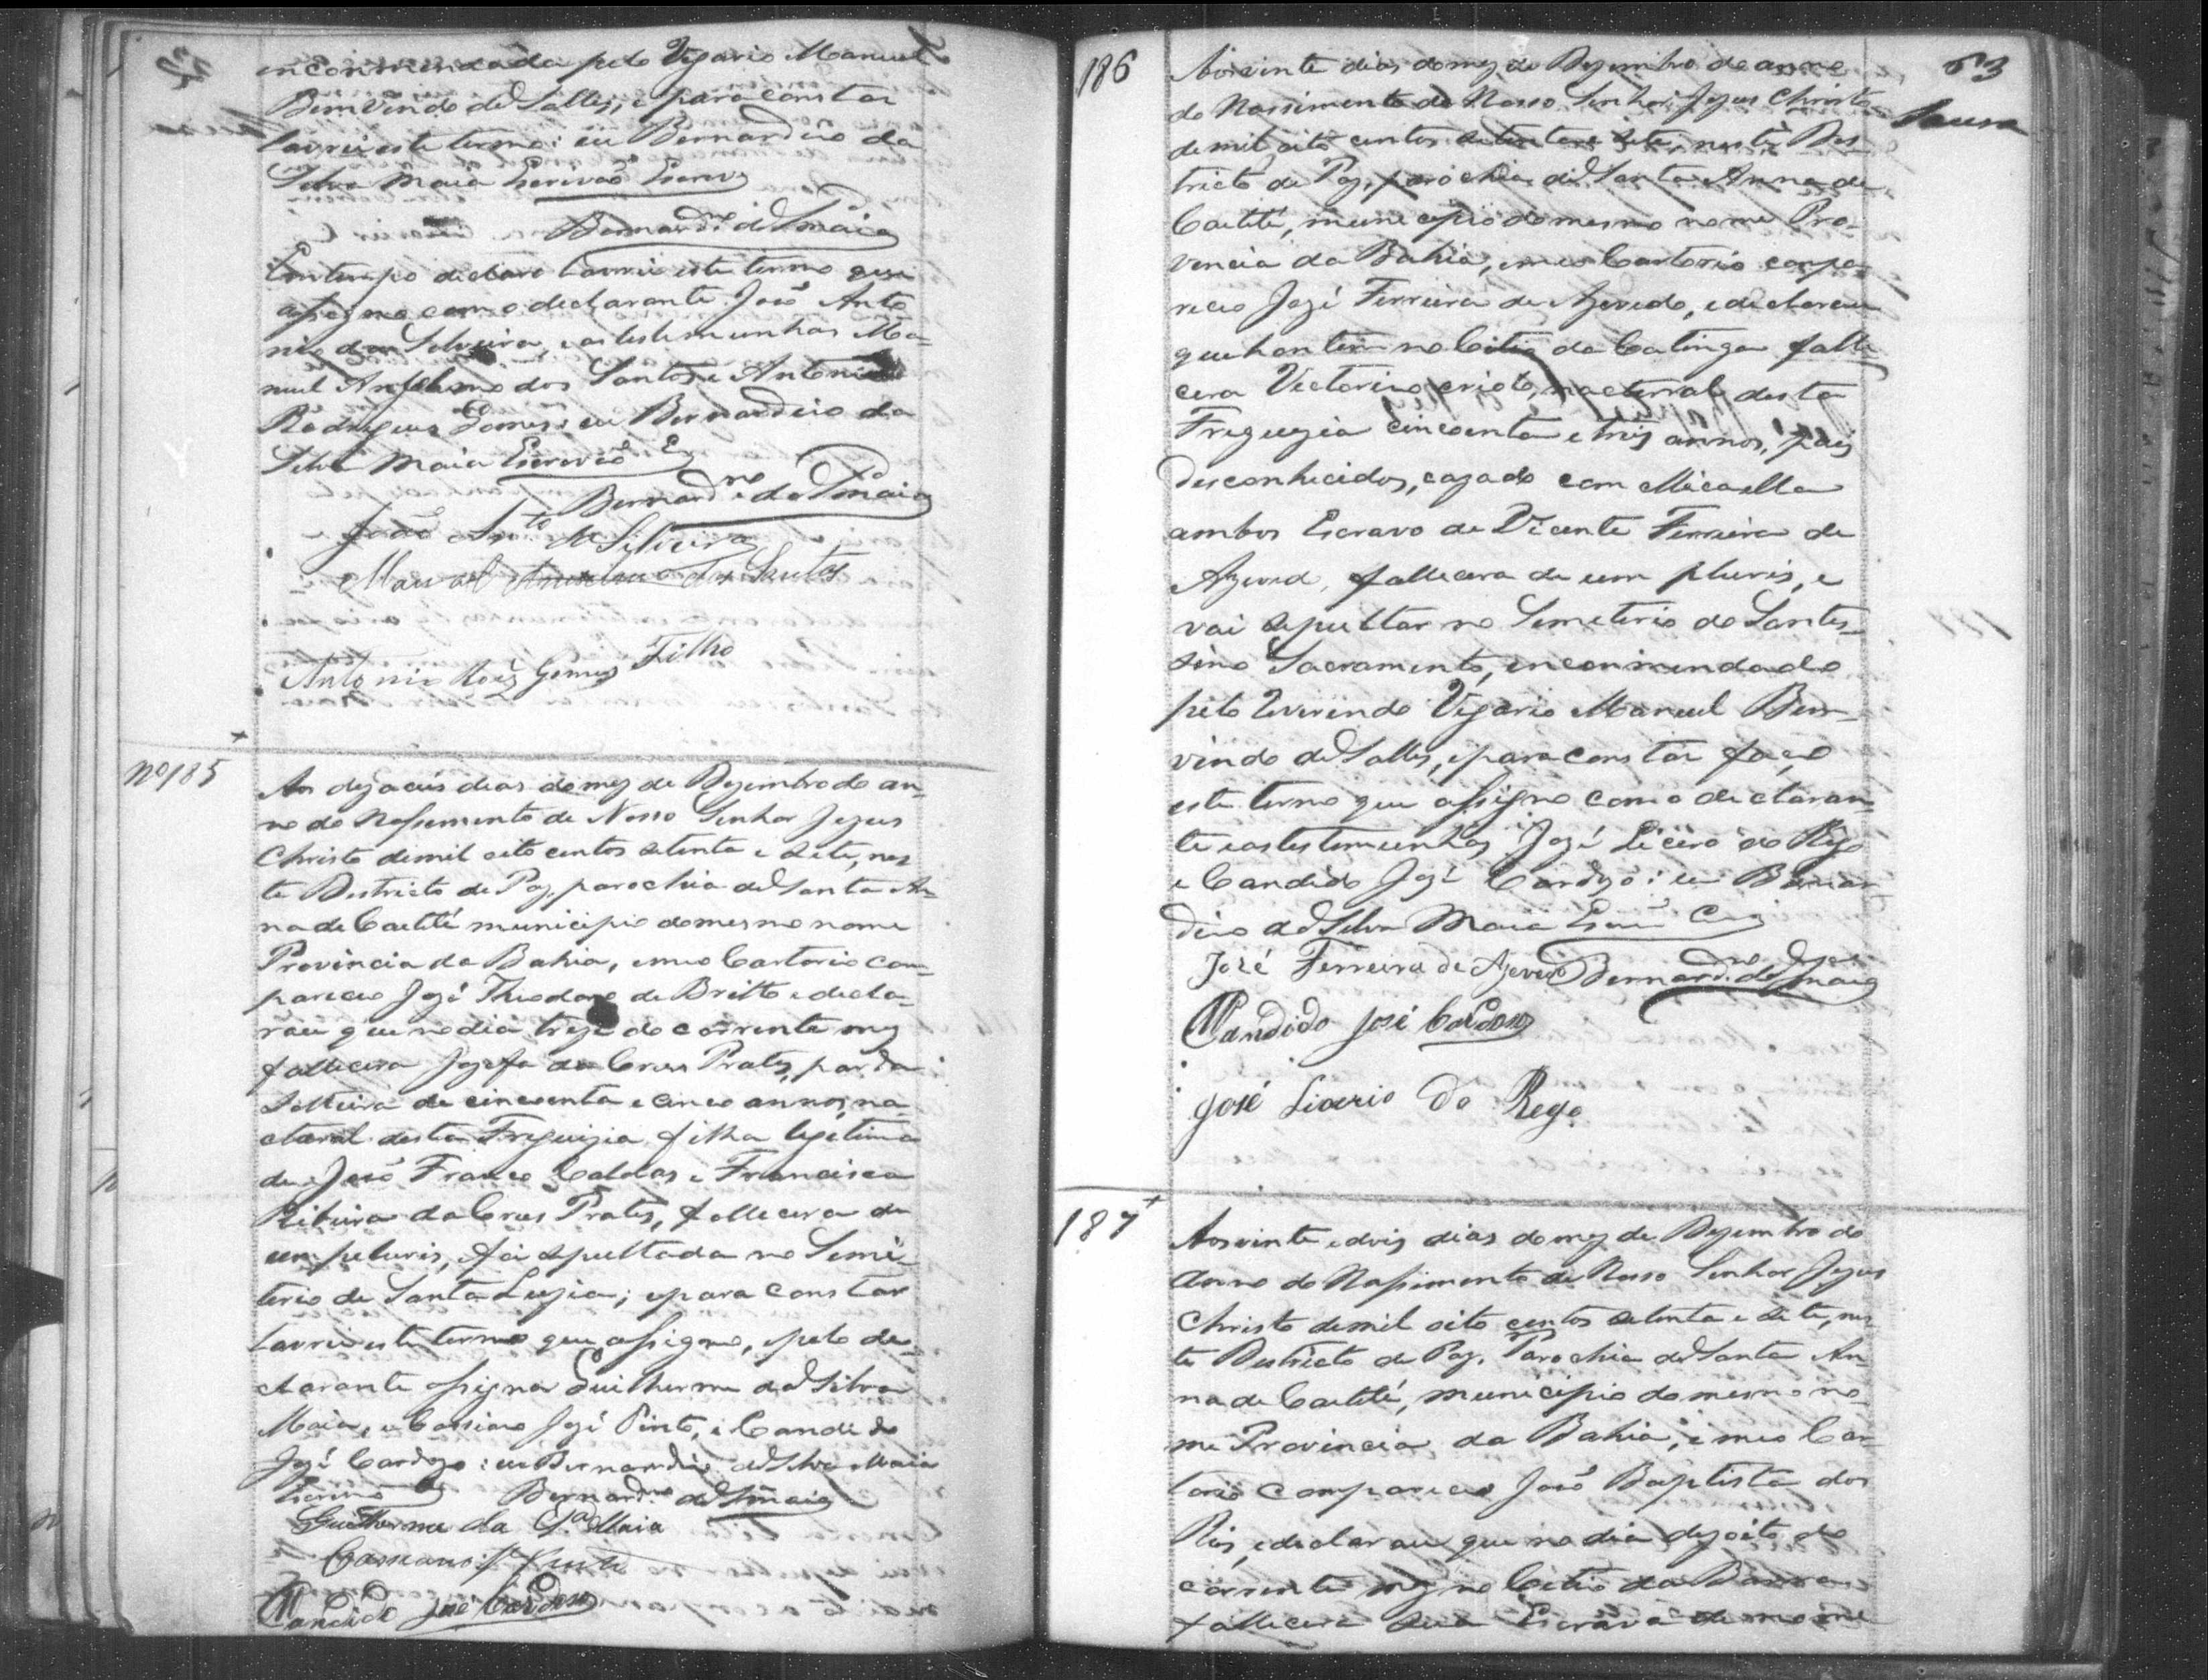 encommendada pelo Vigario Manuel
Bemvindo de Salles, e para constar
lavrei este termo: eu Bernardino da
Silva Maia Escrivão Escrevi
Bernardno da Sª Maia
Em tempo declaro lavrei este termo que
assigno com o declarante João Anto
nio da Silveira, e as testemunhas Ma-
nuel Anselmo dos Santos e Antonio
Rodrigues Gomes: eu Bernardino da
Silva Maia Escrivão Es
Bernardno da Sª Maia
João Anto da Silveira
Manoel Anselmo dos Santos
Antonio Roiz Gomes Filho
Nº 185
Aos dezaceis dias do mez de Dezembro do an-
no do Nassemento de Nosso Senhor Jezus
Christo de mil oito centos setenta e sete, nes
te Destricto de Paz, parochia de Santa An-
na de Caetité municipio do mesmo nome
Provincia da Bahia, em meo Cartorio com-
pareceo Jozé Theodoro de Britto e decla-
rau que no dia treze do corrente mez
fallecera Jozefa da Crus Prates, parda
Solteira de cincoenta e cinco annos, na-
ctural desta Freguizia, filha legitima
de João Franco Caldas e Francisca
Ribeira da Crus Prates, fallecera de
um peluris, foi sepultada no Semi-
terio de Santa Luzia; e para constar
lavrei este termo que assigno, e pelo de-
clarante assigna Guilherme da Silva
Maia, e Cassiano Jozé Pinto, e Candido
Jozé Cardozo: eu Bernardino da Silva Maia
Escrivão Bernardno da Sª Maia
Guilherme da Sª Maia
Cassiano Je Pinto
Candido José Cardoso
63
Sousa
186
Aos vinte dias do mez de Dezembro do anno
do Nassimento de Nosso Senhor Jezus Christo
de mil oito centos setenta e sete, neste Des
tricto de Paz, parochia de Santa Anna de
Caetité, municipio do mesmo nome Pro-
vencia da Bahia, em meo Cartorio compa
receo Jozé Ferreira de Azevedo, e declarau
que hontem no Citio da Catinga falle
cera Victorino criolo, nactural desta
Freguezia cincoenta e tres annos, pais
desconhecidos, cazado com Micaella
ambos Escravo de Vicente Ferreira de
Azeved, fallecera de um pluris, e
vai sepultar no Semeterio do Santis-
simo Sacramento, encommendado
pelo Reverendo Vigario Manuel Bem-
vindo de Salles, e para constar faço
este termo que assigno com o declaran-
te e as testemunhas Jozé Licerio do Rego
e Candido Jozé Cardozo: eu Bernar
dino da Silva Maia Escrivão
José Ferreira de Azevedo Bernardno da Sª Maia
Candido José Cardoso
José Licerio do Rego
187
Aos vinte e dois dias do mez de Dezembro do
anno do Nassimento de Nosso Senhor Jezus
Christo de mil oito centos setenta e sete, nes
te Destricto de Paz, Parochia de Santa An-
na de Caetité, municipio do mesmo no-
me Provincia da Bahia, em meo Car
torio compareceo João Baptista dos
Reis, e declarau que no dia dezoito do
corrente mez no Citio da Barra
fallecera sua Escrava de nome